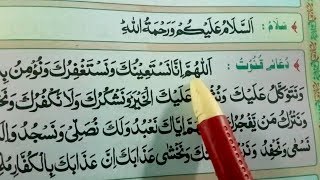 سلام: اَلسَّلَامُ عَلَيْكُمْ وَرَحْمَةُ اللهِ
دعائے قنوت: اَللّٰهُمَّ اِنَّا نَسْتَعِيْنُكَ وَنَسْتَغْفِرُكَ وَنُؤْمِنُ بِ
وَنَتَوَكَّلُ عَلَيْكَ وَنُثْنِىْ عَلَيْكَ الْخَيْرَ وَنَشْكُرُكَ وَلَا نَكْفُرُكَ وَنَخْ
وَنَتْرُكُ مَنْ يَّفْجُرُكَ اِيَّاكَ نَعْبُدُ وَلَكَ نُصَلِّىْ وَنَسْجُدُ وَاِلَيْ
نَسْعٰى وَنَحْفِدُ وَنَخْشٰى عَذَابَكَ اِنَّ عَذَابَكَ بِالْكُفَّارِ مُلْ